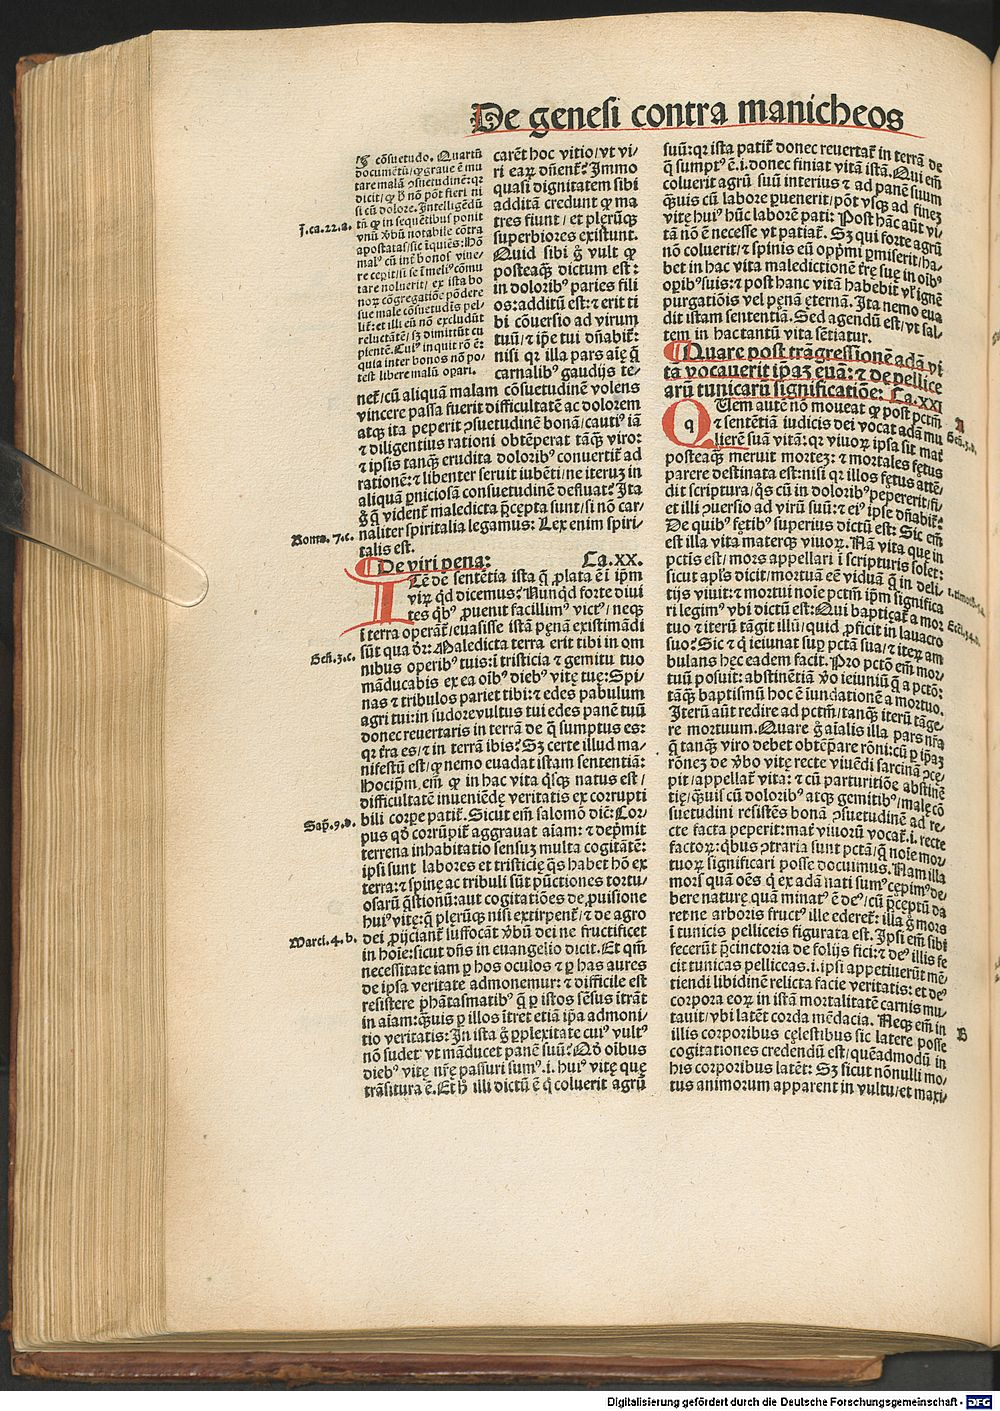 De genesi contra manicheos
ꝫ cōsuetudo. Quartū
documētū/ ꝙ graue ē mu
tare malā ↄsuetudinē: qꝛ
dicit/ ꝙ ħ nō pōt fieri ni
si cū doloꝛe. Intelligēdū
tn̄ ꝙ in sequētibus ponit
vnū ꝟbū notabile cōtra
apostatas/ sic īquiēs: Hō
malꝰ cū int̄ bonos viue/
re cepit/ si se ī meliꝰ cōmu
tare noluerit/ ex ista bo
noꝝ cōgregatiōe pōdere
sue male cōsuetudīs pel/
lit̄: et illi eū nō excludūt
reluctātē/ sꝫ dimittūt cu
pientē. Cuiꝰ in quit rō ē:
quia inter bonos nō po/
test libere malū opari.
J.ca.22.a.
carēt hoc vitio/ vt vi/
ri eaꝝ dn̄ent̄? Immo
quasi dignitatem sibi
additā credunt ꝙ ma
tres fiunt/ et plerūqꝫ
superbiores existunt.
Quid sibi g̊ vult ꝙ
posteaqꝫ dictum est:
in doloribꝰ paries fili
os: additū est: ⁊ erit ti
bi cōuersio ad virum
tuū/ ⁊ ip̄e tui dn̄abit̄:
nisi qꝛ illa pars aīę q̄
carnalibꝰ gaudijs te/
net̄/ cū aliquā malam cōsuetudinē volens
vincere passa fuerit difficultatē ac dolorem
atqꝫ ita peperit ↄsuetudinē bonā/ cautiꝰ iā
⁊ diligentius rationi obtēperat tāqꝫ viro:
⁊ ipsis tanqꝫ erudita doloribꝰ conuertit̄ ad
rationē: ⁊ libenter seruit iubēti/ ne iteruꝫ in
aliquā ꝑniciosā consuetudinē defluat? Ita
g̊ q̄ vident̄ maledicta p̄cepta sunt/ si nō car/
naliter spiritalia legamus: Lex enim spiri/
talis est.
Roma. 7.c.
De viri pena: Ca.XX.
ITē de sentētia ista q̄ ꝓlata ē ī ip̄m
viꝝ qd̄ dicemus? Nunqd̄ forte diui
tes qbꝰ ꝓuenit facillimꝰ victꝰ/ neqꝫ
ī terra operāt̄/ euasisse istā pęnā existimādi
sūt qua dr̄: Maledicta terra erit tibi in om
nibus operibꝰ tuis: ī tristicia ⁊ gemitu tuo
māducabis ex ea oībꝰ diebꝰ vitę tuę: Spi/
nas ⁊ tribulos pariet tibi: ⁊ edes pabulum
agri tui: in sudore vultus tui edes panē tuū
donec reuertaris in terrā de q̄ sumptus es:
qꝛ tr̄a es/ ⁊ in terrā ibis? Sꝫ certe illud ma/
nifestū est/ ꝙ nemo euadat istam sententiā:
Hoc ip̄m em̄ ꝙ in hac vita qsqꝫ natus est/
difficultatē inueniēdę veritatis ex corrupti
bili corꝑe patit̄. Sicut em̄ salomō dic̄: Cor/
pus qd̄ corrūpit̄ aggrauat aīam: ⁊ dep̄mit
terrena inhabitatio sensuꝫ multa cogitātē:
ipsi sunt labores et tristicię qs habet hō ex
terra: ⁊ spinę ac tribuli sūt pūctiones tortu/
osarū qstionū: aut cogitatiōes de ꝓuisione
huiꝰ vitę: q̄ plerūqꝫ nisi extirpent̄/ ⁊ de agro
dei ꝓijciant̄ suffocāt ꝟbū dei ne fructificet
in hoīe: sicut dn̄s in euangelio dicit. Et qm̄
necessitate iam ꝑ hos oculos ⁊ ꝑ has aures
de ipsa veritate admonemur: ⁊ difficile est
resistere phātasmatibꝰ q̄ ꝑ istos sēsus itrāt
in aīam: qꝫuis ꝑ illos ītret etiā ip̄a admoni/
tio veritatis: In ista g̊ ꝑplexitate cuiꝰ vultꝰ
nō sudet vt māducet panē suū? Qd̄ oībus
diebꝰ vitę nr̄ę passuri sumꝰ .i. huiꝰ vitę quę
trāsitura ē. Et ħ illi dictū ē q̇ coluerit agrū
Geń.3.c.
Sap̄.9.d.
Marci.4.b.
suū: qꝛ ista patit̄ donec reuertat̄ in terrā de
q̄ sumptꝰ ē .i. donec finiat vitā istā. Qui em̄
coluerit agrū suū interius ⁊ ad panē suum
qꝫuis cū labore ꝑuenerit/ pōt vsqꝫ ad fineꝫ
vitę huiꝰ hūc laborē pati: Post hāc aūt vi/
tā nō ē necesse vt patiat̄. Sꝫ qui forte agrū
nō coluerit/ ⁊ spinis eū opp̄mi ꝑmiserit/ ha/
bet in hac vita maledictionē tr̄ę suę in oībꝰ
oꝑibꝰ suis: ⁊ post hanc vitā habebit vl̓ ignē
purgatiōis vel pęnā eternā. Ita nemo eua
dit istam sententiā. Sed agendū est/ vt sal/
tem in hac tantū vita sētiatur.
Quare post trāgressionē adā vi
tā vocauerit ip̄aꝫ euā: ⁊ de pellice
arū tunicarū significatiōe: Ca.XXI
QUem autē nō moueat ꝙ post pctm̄
⁊ sentētiā iudicis dei vocat adā mu
lierē suā vitā: qꝛ viuoꝝ ipsa sit mat̄
posteaqꝫ meruit morteꝫ: ⁊ mortales fętus
parere destinata est: nisi qꝛ illos fętus attē/
dit scriptura/ qs cū in doloribꝰ pepererit/ fi/
et illi ↄuersio ad virū suū: ⁊ eiꝰ ipse dn̄abit̄:
De quibꝰ fętibꝰ superius dictū est: Sic em̄
est illa vita materqꝫ viuoꝝ. Nā vita quę in
pctīs est/ mors appellari ī scripturis solet:
sicut apl̄s dicit/ mortuā eē viduā q̄ in deli/
tijs viuit: ⁊ mortui noīe pctm̄ ip̄m significa
ri legimꝰ vbi dictū est: Qui baptiçat̄ a mor
tuo ⁊ iterū tāgit illū/ quid ꝓficit in lauacro
suo? Sic ⁊ q̇ ieiunat suꝑ pctā sua/ ⁊ iteꝝ am
bulans hęc eadem facit. Pro pctō em̄ mor/
tuū posuit: abstinētiā ꝟo ieiuniū q̄ a pctō:
tāqꝫ baptismū hoc ē īundationē a mortuo.
Iterū aūt redire ad pctm̄/ tanqꝫ iterū tāge/
re mortuum. Quare g̊ aīalis illa pars nr̄a
q̄ tanqꝫ viro debet obtēꝑare rōni: cū ꝑ ip̄aꝫ
rōneꝫ de ꝟbo vitę recte viuēdi sarcinā ↄce/
pit/ appellat̄ vita: ⁊ cū parturitiōe abstinē
tię/ qꝫuis cū doloribꝰ atqꝫ gemitibꝰ/ malę cō
suetudini resistēs bonā ↄsuetudinē ad re/
cte facta peperit: mat̄ viuorū vocat̄ .i. recte
factoꝝ: qbus ↄtraria sunt pctā/ q̄ noīe mor/
tuoꝝ significari posse docuimus. Nam illa
mors quā oēs q̇ ex adā nati sumꝰ cępimꝰ de/
bere naturę quam minatꝰ ē deꝰ/ cū p̄ceptū da
ret ne arboris fructꝰ ille ederet̄: illa g̊ mors
ī tunicis pelliceis figurata est. Ipsi em̄ sibi
fecerūt p̄cinctoria de folijs fici: ⁊ deꝰ illis fe
cit tunicas pelliceas .i. ipsi appetiuerūt mē/
tiendi libidinē relicta facie veritatis: et deꝰ
corpora eoꝝ in istā mortalitatē carnis mu/
tauit/ vbi latēt corda mēdacia. Neqꝫ em̄ in
illis corporibus cęlestibus sic latere posse
cogitationes credendū est/ quēadmodū in
his corporibus latēt: Sꝫ sicut nōnulli mo/
tus animorum apparent in vultu/ et maxi/
A
Geń.3.d.
1.timoth.5.
Eccī.34.d.
B
Digitalisierung gefördert durch die Deutsche Forschungsgemeinschaft - DFG